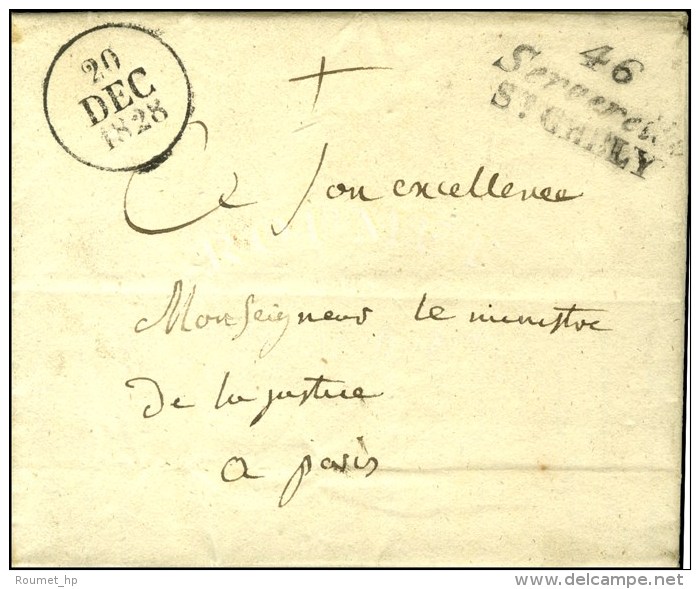 20
DEC
1828
46
Serverette
ST CHELY
Ce Son excellence
Monseigneur le ministre
de la justice
a paris
Roumet_hp
delcampe.net